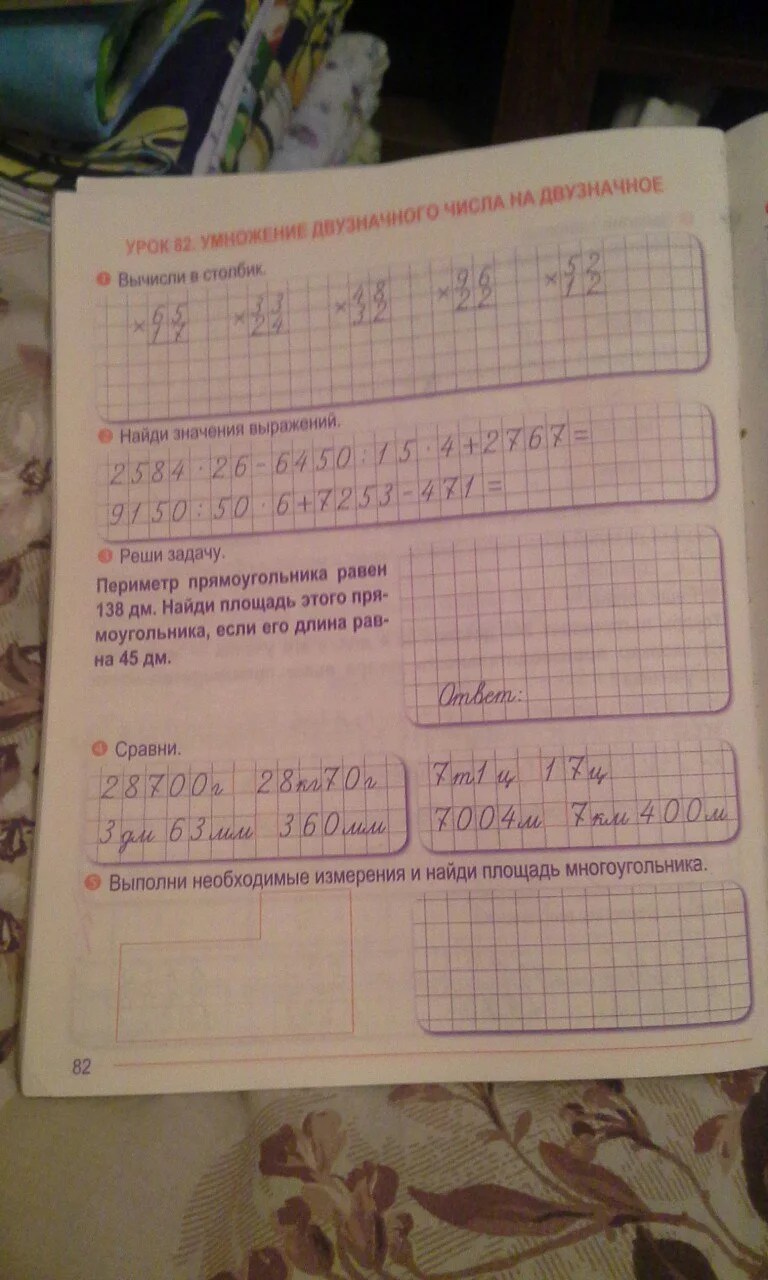 УРОК 82. УМНОЖЕНИЕ ДВУЗНАЧНОГО ЧИСЛА НА ДВУЗНАЧНОЕ
1 Вычисли в столбик.
× 65 × 33 × 48 × 96 × 52
17 24 32 22 12
2 Найди значения выражений.
2584 · 26 - 6450 : 15 · 4 + 2767 =
9150 : 50 · 6 + 7253 - 471 =
3 Реши задачу.
Периметр прямоугольника равен
138 дм. Найди площадь этого пря-
моугольника, если его длина рав-
на 45 дм.
Ответ:
4 Сравни.
28700г 28кг70г 7т1ц 17ц
3дм 63мм 360мм 7004м 7км400м
5 Выполни необходимые измерения и найди площадь многоугольника.
82